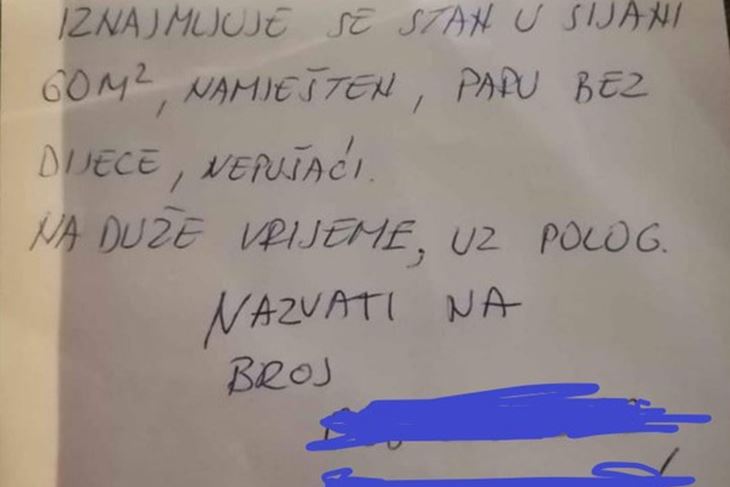 IZNAJMLJUJE SE STAN U SIJANI
60M², NAMJEŠTEN, PARU BEZ
DIJECE, NEPUŠAĆI.
NA DUŽE VRIJEME, UZ POLOG.
NAZVATI NA
BROJ